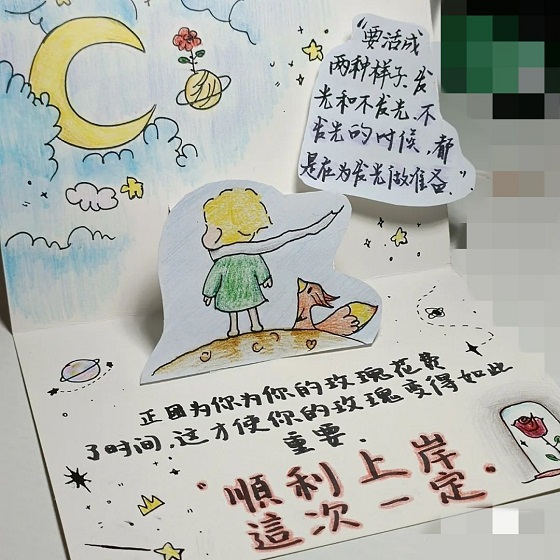 “要活成
两种样子，发
光和不发光，不
发光的时候，都
是在为发光做准备。”
正因为你为你的玫瑰花费
了时间，这才使你的玫瑰变得如此
重要．
順利上岸
這次一定．